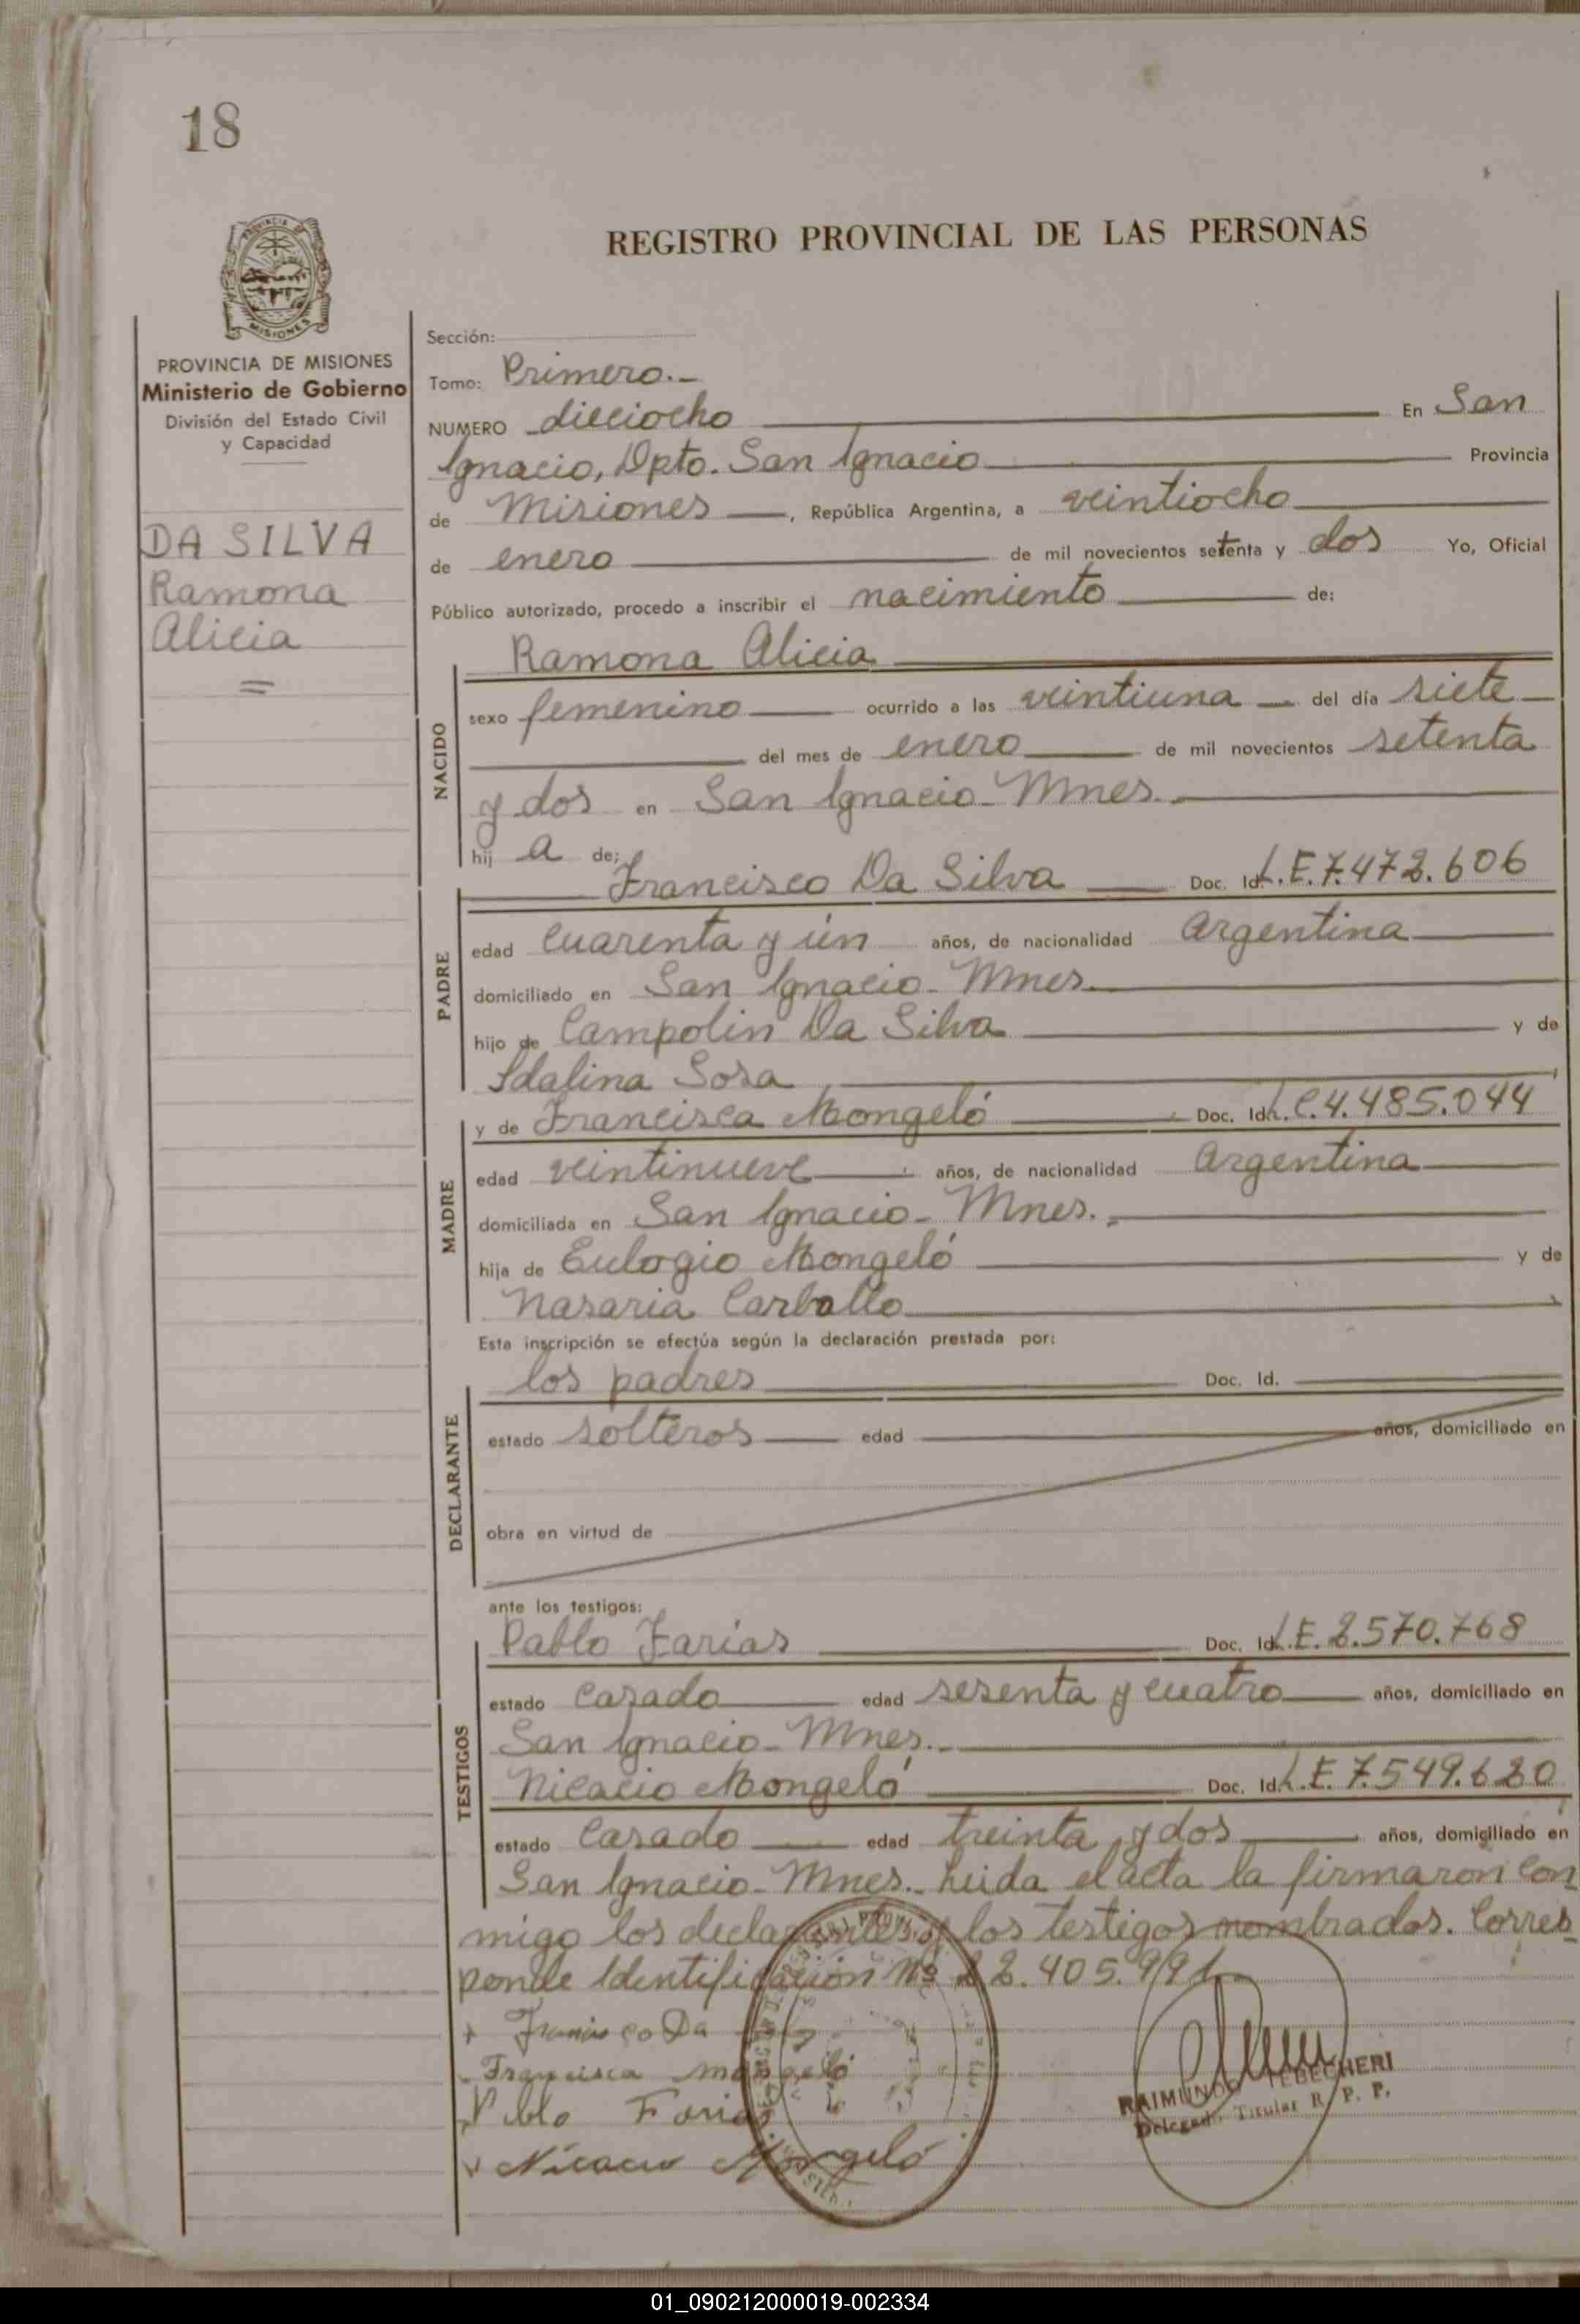 18
REGISTRO PROVINCIAL DE LAS PERSONAS
PROVINCIA DE MISIONES
Ministerio de Gobierno
División del Estado Civil
y Capacidad
DA SILVA
Ramona
Alicia
=
Sección:
Tomo: Primero.-
NUMERO dieciocho En San
Ignacio, Dpto. San Ignacio Provincia
de Misiones, República Argentina, a veintiocho
de enero de mil novecientos setenta y dos Yo, Oficial
Público autorizado, procedo a inscribir el nacimiento de:
NACIDO
Ramona Alicia
sexo femenino ocurrido a las veintiuna del día siete
del mes de enero de mil novecientos setenta
y dos en San Ignacio-Mnes.
hij a de:
PADRE
Francisco Da Silva Doc. Id. L.E.7.472.606
edad cuarenta y ún años, de nacionalidad Argentina
domiciliado en San Ignacio-Mnes.
hijo de Campolin Da Silva y de
Idalina Sosa
MADRE
y de Francisca Mongeló Doc. Id. L.C.4.485.044
edad veintinueve años, de nacionalidad Argentina
domiciliada en San Ignacio-Mnes.
hija de Eulogio Mongeló y de
Nasaria Carballo
Esta inscripción se efectúa según la declaración prestada por:
DECLARANTE
los padres Doc. Id.
estado solteros edad años, domiciliado en
obra en virtud de
ante los testigos:
TESTIGOS
Pablo Farías Doc. Id. L.E.2.570.768
estado casado edad sesenta y cuatro años, domiciliado en
San Ignacio-Mnes.
Nicacio Mongeló Doc. Id. L.E.7.549.620
estado casado edad treinta y dos años, domiciliado en
San Ignacio-Mnes. Leida el acta la firmaron con
migo los declarantes y los testigos nombrados. Corres
ponde Identificación Nº 22.405.991
Francisco Da
Francisca Mongeló
Pablo Farias
Nicacio Mongeló
RAIMUNDO TEBECHERI
Delegado Titular R. P. P.
01_090212000019-002334